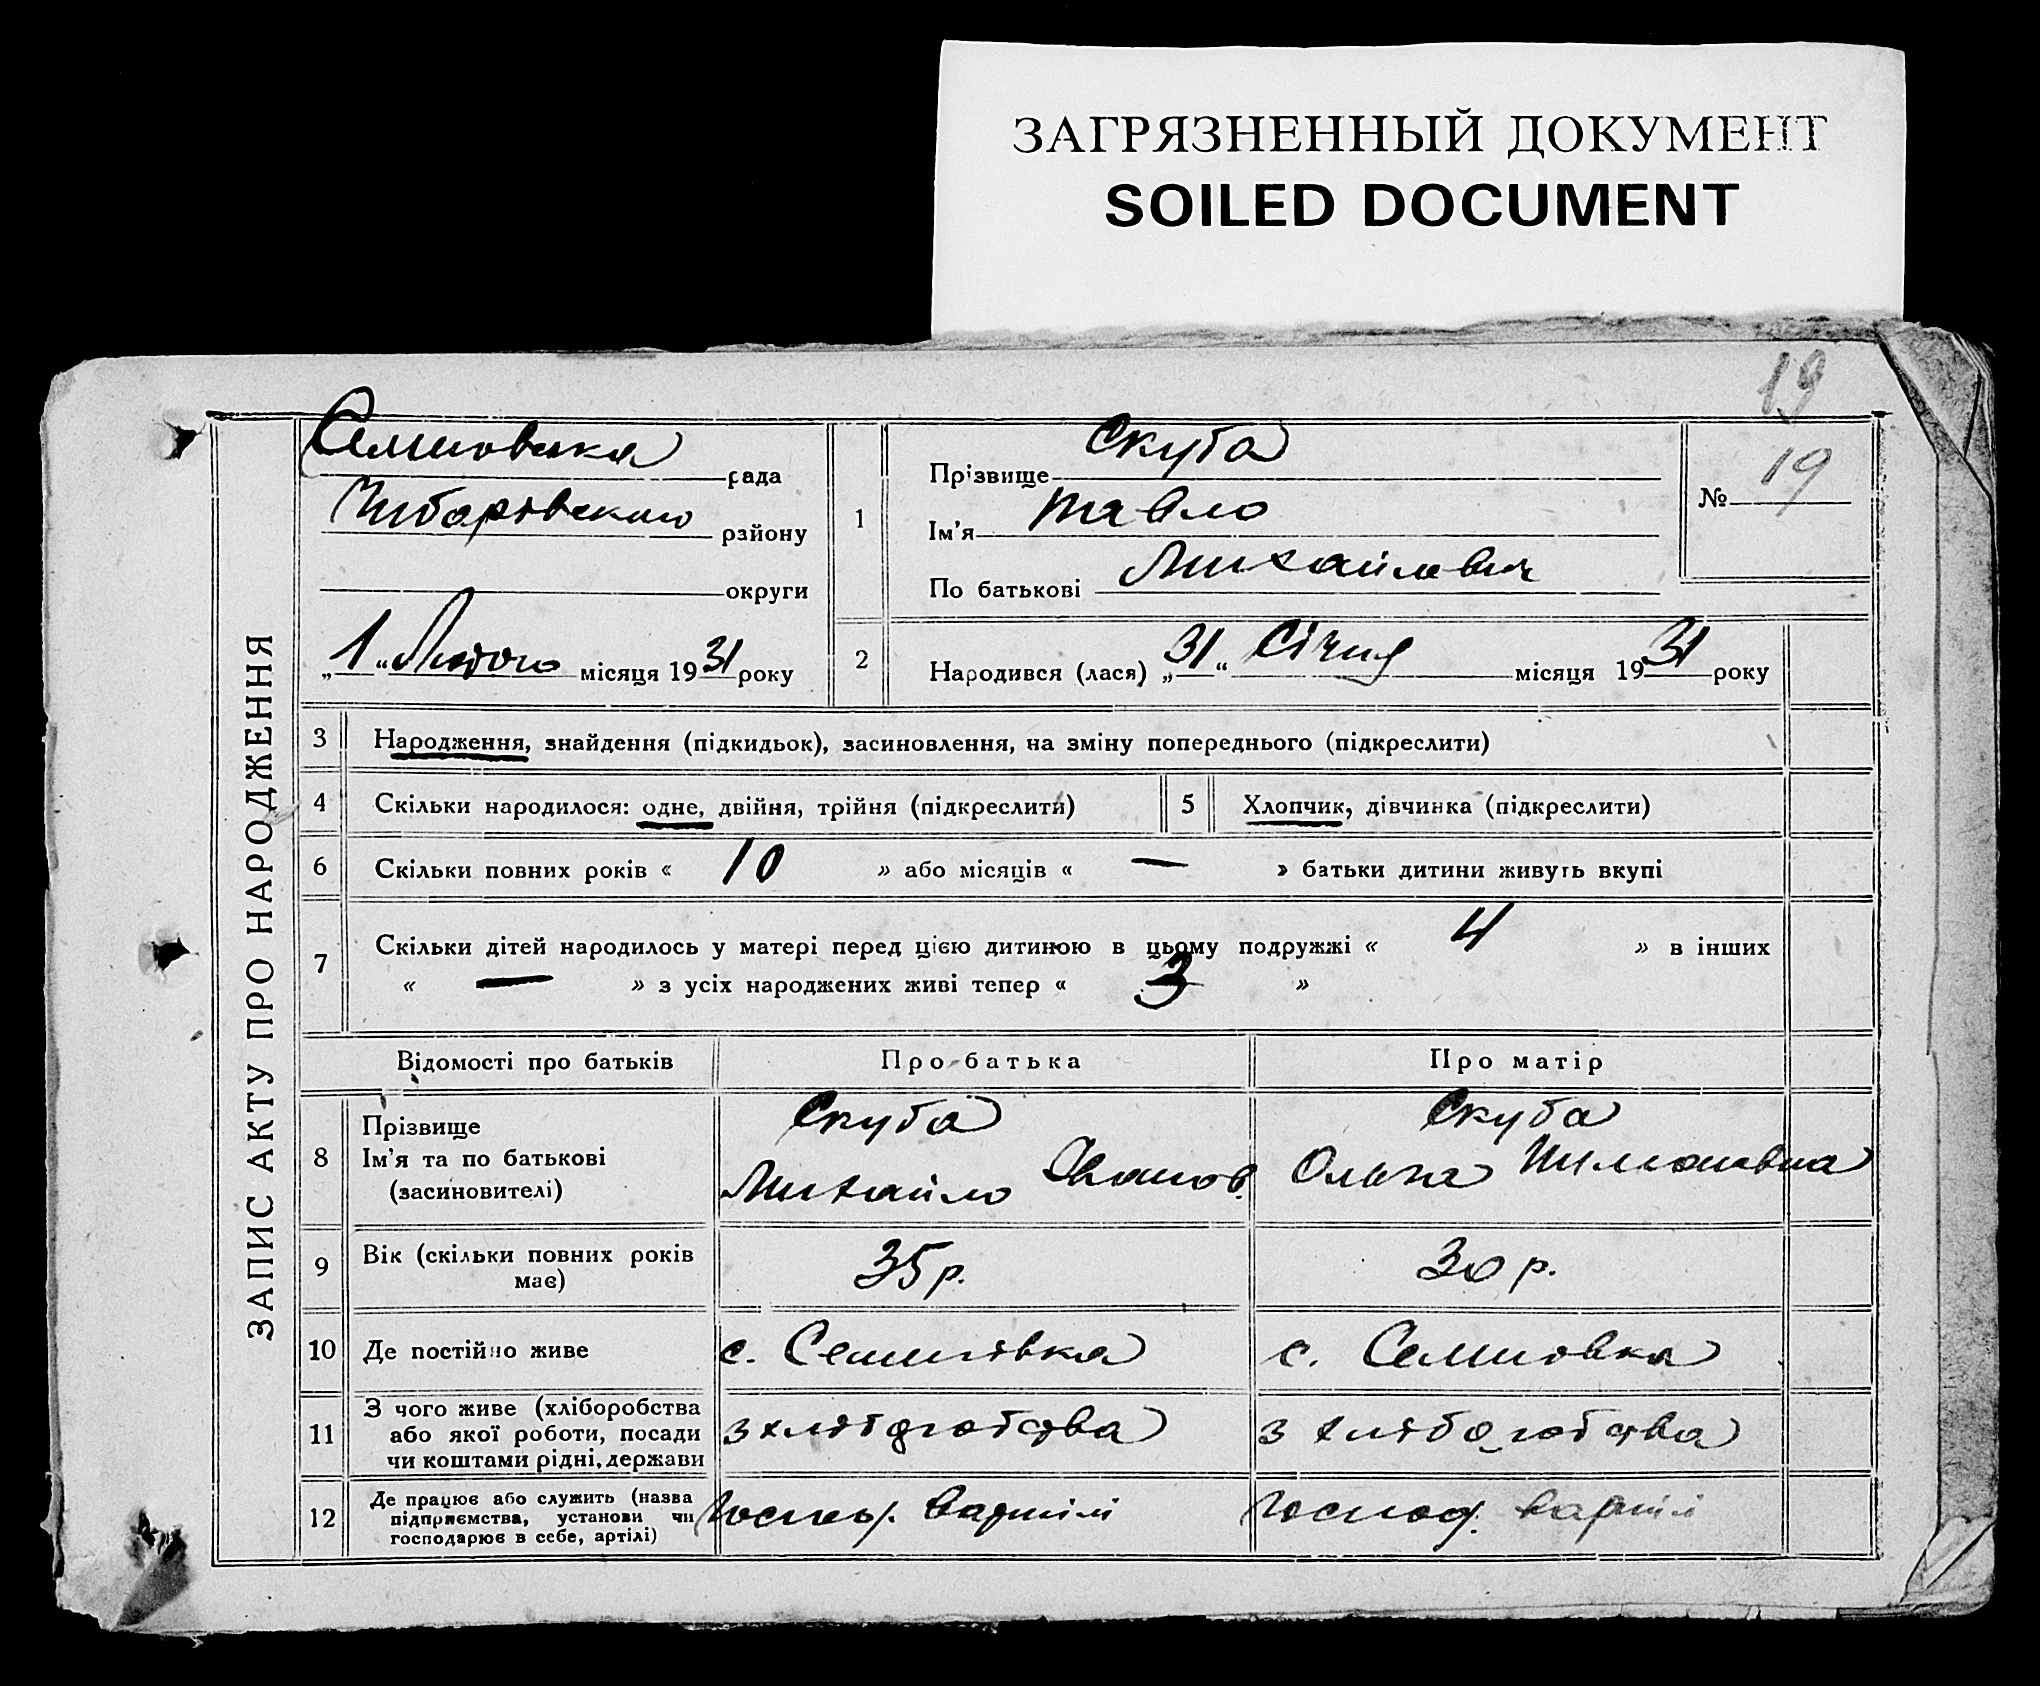 ЗАГРЯЗНЕННЫЙ ДОКУМЕНТ
SOILED DOCUMENT
19
ЗАПИС АКТУ ПРО НАРОДЖЕННЯ
Семиовська рада
району
округи
„1“ Лютого місяця 1931 року
1
Прізвище Скуба
Ім'я Павло
По батькові Михайлович
№ 19
2
Народився (лася) „31“ Січня місяця 1931 року
3 Народження, знайдення (підкидьок), засиновлення, на зміну попереднього (підкреслити)
4 Скільки народилося: одне, двійня, трійня (підкреслити)
5 Хлопчик, дівчинка (підкреслити)
6 Скільки повних років « 10 » або місяців « — » батьки дитини живуть вкупі
7 Скільки дітей народилось у матері перед цією дитиною в цьому подружжі « 4 » в інших
« — » з усіх народжених живі тепер « 3 »
Відомості про батьків Про батька Про матір
8 Прізвище
Ім'я та по батькові
(засиновителі)
Скуба
Михайло Іванов.
Скуба
Ольга
9 Вік (скільки повних років
має)
35 р.
30 р.
10 Де постійно живе
с. Семиовка
с. Семиовка
11 З чого живе (хліборобства
або якої роботи, посади
чи коштами рідні, держави
з хліборобства
з хліборобства
12 Де працює або служить (назва
підприємства, установи чи
господарює в себе, артілі)
господ. в артілі
господ. в артілі